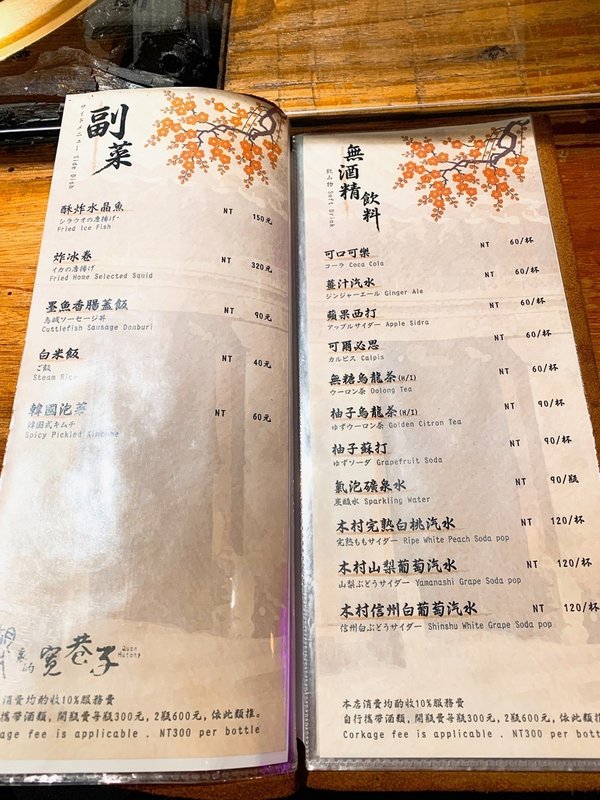 副菜
サイドメニュー Side Dish
酥炸水晶魚 NT 150元
シラウオの唐揚げ
Fried Ice Fish
炸冰卷 NT 320元
イカの唐揚げ
Fried Home Selected Squid
墨魚香腸蓋飯 NT 90元
烏賊ソーセージ丼
Cuttlefish Sausage Donburi
白米飯 NT 40元
ご飯
Steam Rice
韓國泡菜 NT 60元
韓国式キムチ
Spicy Pickled Kimchme
寬巷子
Quan Hutong
消費均酌收10%服務費
攜帶酒類,開瓶費每瓶300元,2瓶600元,依此類推。
kage fee is applicable . NT300 per bottle
無酒精飲料
飲み物 Soft Drink
可口可樂 NT 60/杯
コーラ Coca Cola
薑汁汽水 NT 60/杯
ジンジャーエール Ginger Ale
蘋果西打 NT 60/杯
アップルサイダー Apple Sidra
可爾必思 NT 60/杯
カルピス Calpis
無糖烏龍茶(H/I) NT 60/杯
ウーロン茶 Oolong Tea
柚子烏龍茶(H/I) NT 90/杯
ゆずウーロン茶 Golden Citron Tea
柚子蘇打 NT 90/杯
ゆずソーダ Grapefruit Soda
氣泡礦泉水 NT 90/瓶
炭酸水 Sparkling Water
木村完熟白桃汽水 NT 120/杯
完熟ももサイダー Ripe White Peach Soda pop
木村山梨葡萄汽水 NT 120/杯
山梨ぶどうサイダー Yamanashi Grape Soda pop
木村信州白葡萄汽水 NT 120/杯
信州白ぶどうサイダー Shinshu White Grape Soda pop
本店消費均酌收10%服務費
自行攜帶酒類,開瓶費每瓶300元,2瓶600元,依此類推。
Corkage fee is applicable . NT300 per bott